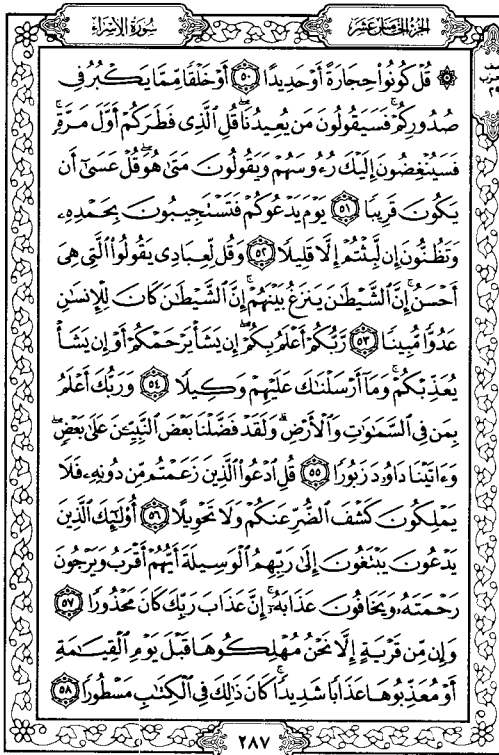 سُورَةُ الإِسْرَاءِ
الجُزْءُ الخَامِسَ عَشَرَ
۞ قُلْ كُونُوا۟ حِجَارَةً أَوْ حَدِيدًا ٥٠ أَوْ خَلْقًا مِّمَّا يَكْبُرُ فِى
صُدُورِكُمْ ۚ فَسَيَقُولُونَ مَن يُعِيدُنَا ۖ قُلِ ٱلَّذِى فَطَرَكُمْ أَوَّلَ مَرَّةٍ ۚ
فَسَيُنْغِضُونَ إِلَيْكَ رُءُوسَهُمْ وَيَقُولُونَ مَتَىٰ هُوَ ۖ قُلْ عَسَىٰٓ أَن
يَكُونَ قَرِيبًا ٥١ يَوْمَ يَدْعُوكُمْ فَتَسْتَجِيبُونَ بِحَمْدِهِۦ
وَتَظُنُّونَ إِن لَّبِثْتُمْ إِلَّا قَلِيلًا ٥٢ وَقُل لِّعِبَادِى يَقُولُوا۟ ٱلَّتِى هِىَ
أَحْسَنُ ۚ إِنَّ ٱلشَّيْطَـٰنَ يَنزَغُ بَيْنَهُمْ ۚ إِنَّ ٱلشَّيْطَـٰنَ كَانَ لِلْإِنسَـٰنِ
عَدُوًّا مُّبِينًا ٥٣ رَّبُّكُمْ أَعْلَمُ بِكُمْ ۖ إِن يَشَأْ يَرْحَمْكُمْ أَوْ إِن يَشَأْ
يُعَذِّبْكُمْ ۚ وَمَآ أَرْسَلْنَـٰكَ عَلَيْهِمْ وَكِيلًا ٥٤ وَرَبُّكَ أَعْلَمُ
بِمَن فِى ٱلسَّمَـٰوَٰتِ وَٱلْأَرْضِ ۗ وَلَقَدْ فَضَّلْنَا بَعْضَ ٱلنَّبِيِّـۧنَ عَلَىٰ بَعْضٍ ۖ
وَءَاتَيْنَا دَاوُۥدَ زَبُورًا ٥٥ قُلِ ٱدْعُوا۟ ٱلَّذِينَ زَعَمْتُم مِّن دُونِهِۦ فَلَا
يَمْلِكُونَ كَشْفَ ٱلضُّرِّ عَنكُمْ وَلَا تَحْوِيلًا ٥٦ أُو۟لَـٰٓئِكَ ٱلَّذِينَ
يَدْعُونَ يَبْتَغُونَ إِلَىٰ رَبِّهِمُ ٱلْوَسِيلَةَ أَيُّهُمْ أَقْرَبُ وَيَرْجُونَ
رَحْمَتَهُۥ وَيَخَافُونَ عَذَابَهُۥٓ ۚ إِنَّ عَذَابَ رَبِّكَ كَانَ مَحْذُورًا ٥٧
وَإِن مِّن قَرْيَةٍ إِلَّا نَحْنُ مُهْلِكُوهَا قَبْلَ يَوْمِ ٱلْقِيَـٰمَةِ
أَوْ مُعَذِّبُوهَا عَذَابًا شَدِيدًا ۚ كَانَ ذَٰلِكَ فِى ٱلْكِتَـٰبِ مَسْطُورًا ٥٨
٢٨٧